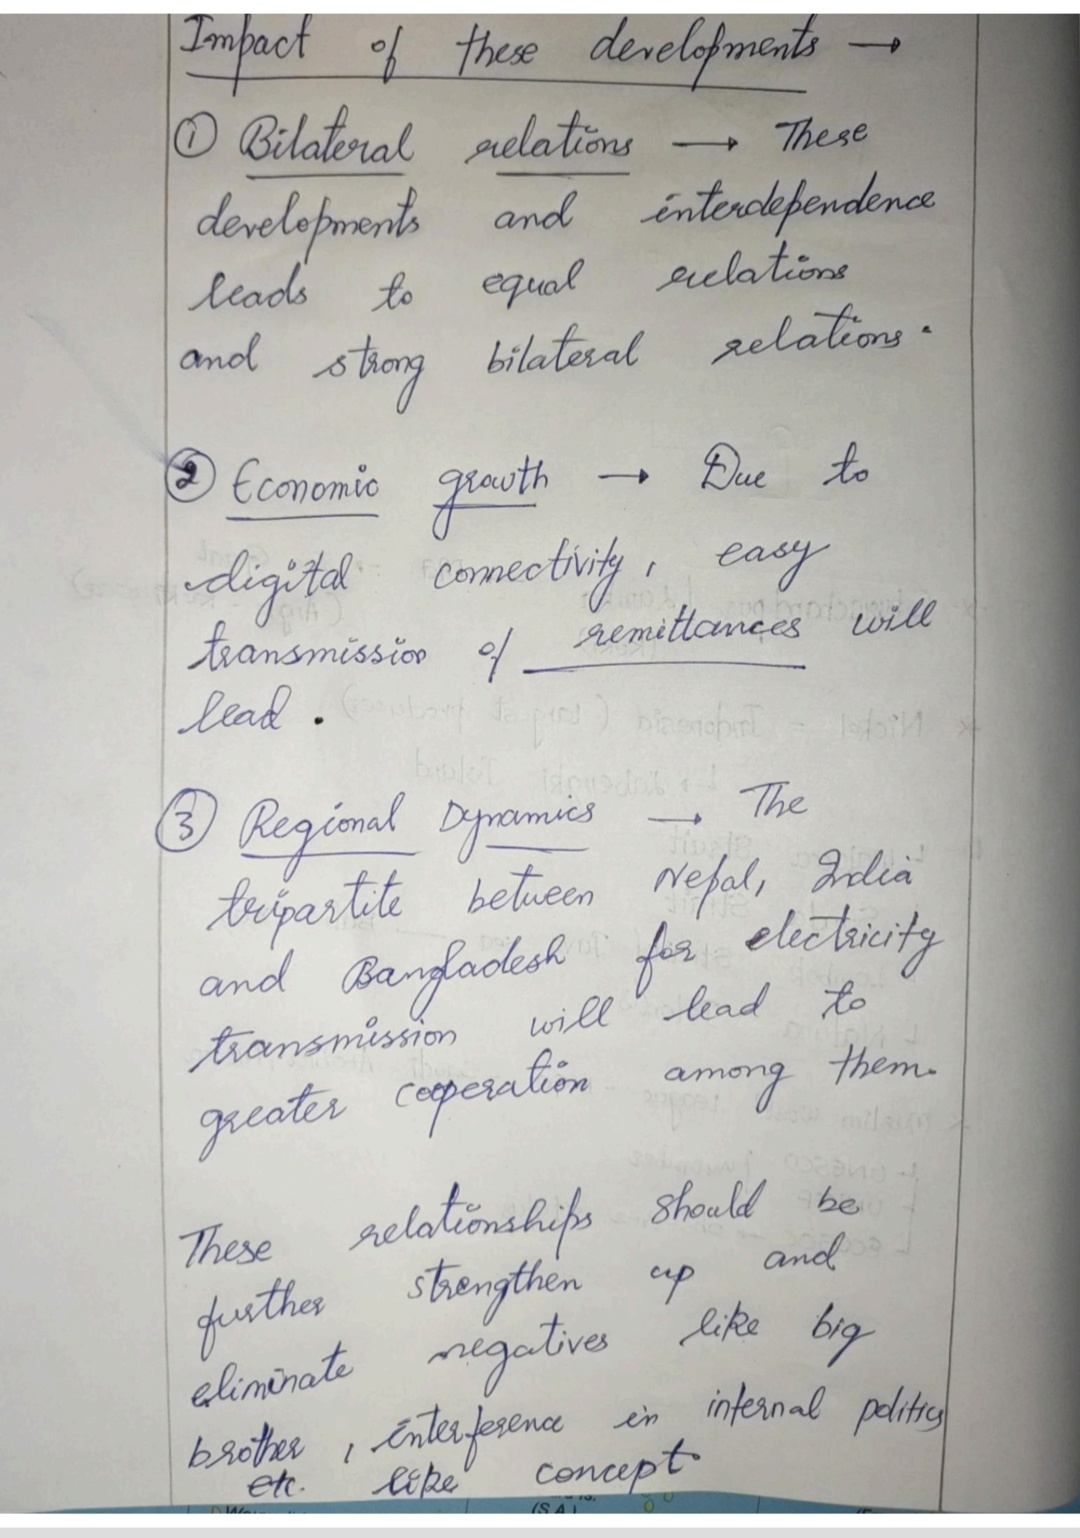 Impact of these developments →
① Bilateral relations → These
developments and interdependence
leads to equal relations
and strong bilateral relations.
② Economic growth → Due to
digital connectivity, easy
transmission of remittances will
lead.
③ Regional Dynamics → The
tripartite between Nepal, India
and Bangladesh for electricity
transmission will lead to
greater cooperation among them.
These relationships should be
further strengthen up and
eliminate negatives like big
brother, interference in internal politics
etc. like concept.
(S.A.)